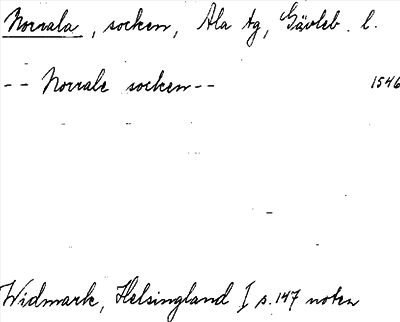 Norrala, socken, Ala tg, Gävleb. l.
-- Norrale socken-- 1546
Widmark, Helsingland I s.147 noten